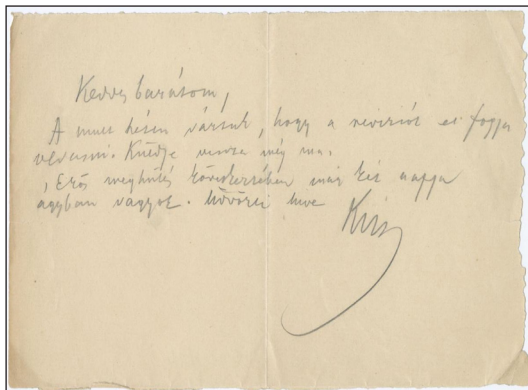 Kedves barátom,
A mult héten vártuk, hogy a revíziót el fogja
olvasni. Küldje vissza még ma.
Erős meghűlés következtében már két napja
ágyban vagyok. üdvözli híve
Kiss